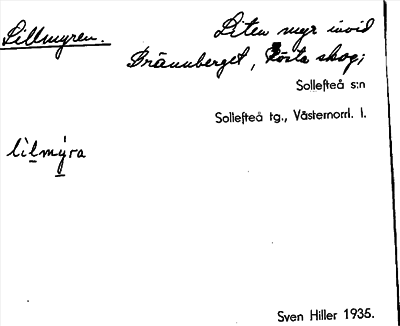 Lillmyren.
Liten myr invid
Brännberget, Rösta skog;
Sollefteå s:n
Sollefteå tg., Västernorrl. l.
lilmýra
Sven Hiller 1935.